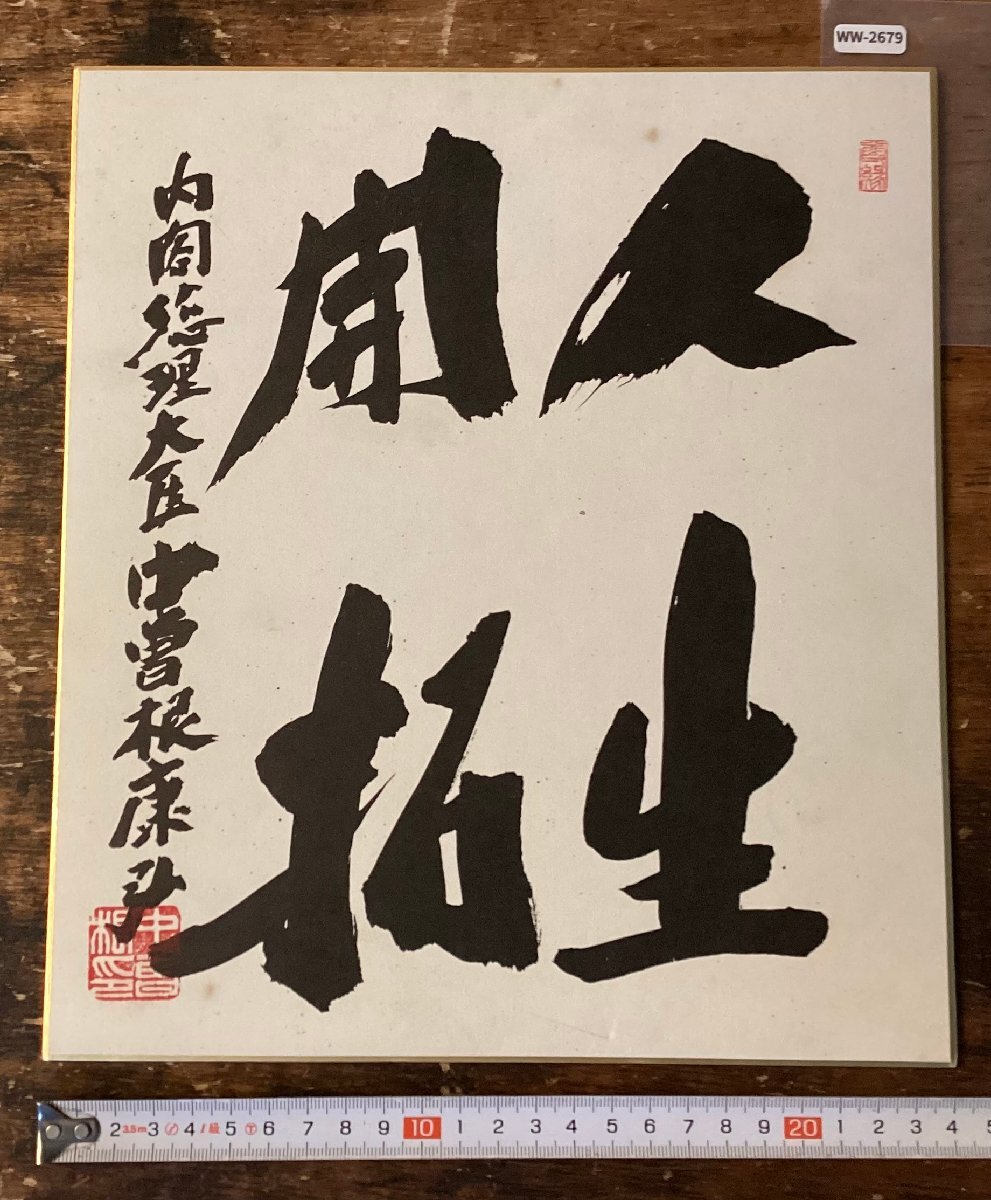 WW-2679
人生
開拓
内閣総理大臣 中曽根康弘
中曽根印
2 3.5m 3 4 5 6 7 8 9 10 1 2 3 4 5 6 7 8 9 20 1 2 3 4 5